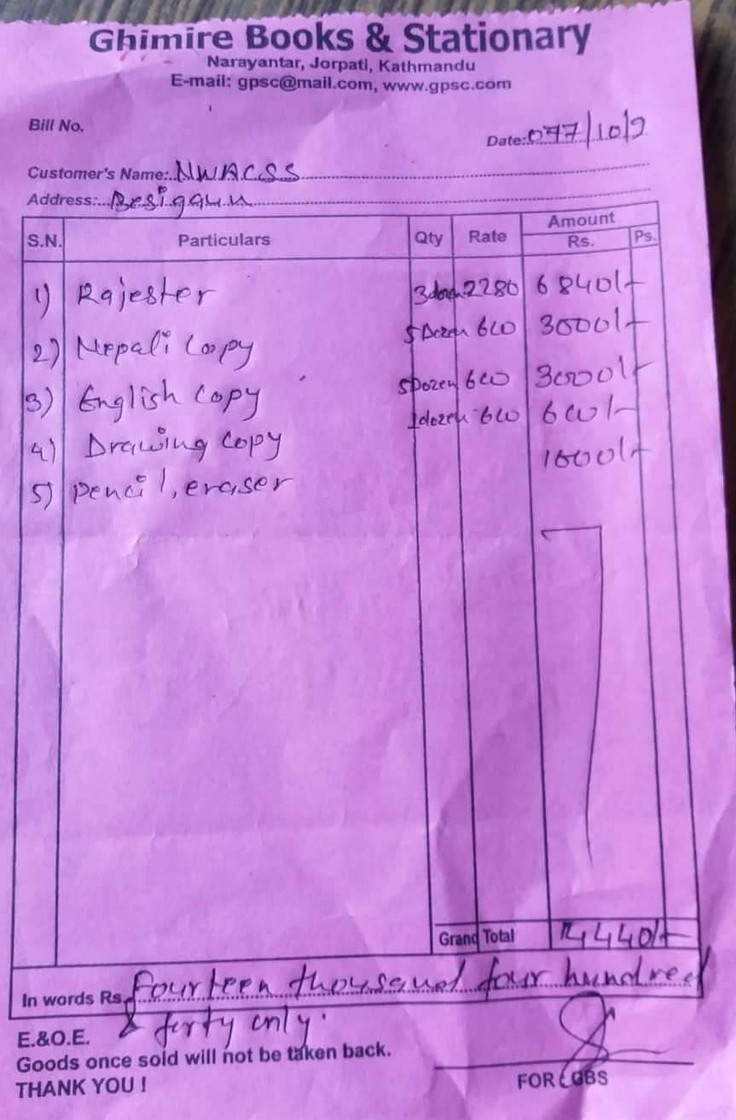 Ghimire Books & Stationary
Narayantar, Jorpati, Kathmandu
E-mail: gpsc@mail.com, www.gpsc.com
Bill No.
Date: 077/10/9
Customer's Name: NWACSS
Address: Besigaun
S.N. Particulars Qty Rate Amount
Rs. Ps.
1) Rajester 3dozen 2280 6840/-
2) Nepali Copy 5Dozen 600 3000/-
3) English Copy 5Dozen 600 3000/-
4) Drawing Copy 1dozen 600 600/-
5) Pencil, eraser 1000/-
Grand Total 14440/-
In words Rs. Fourteen thousand four hundred
& forty only.
E.&O.E.
Goods once sold will not be taken back.
THANK YOU !
FOR GBS